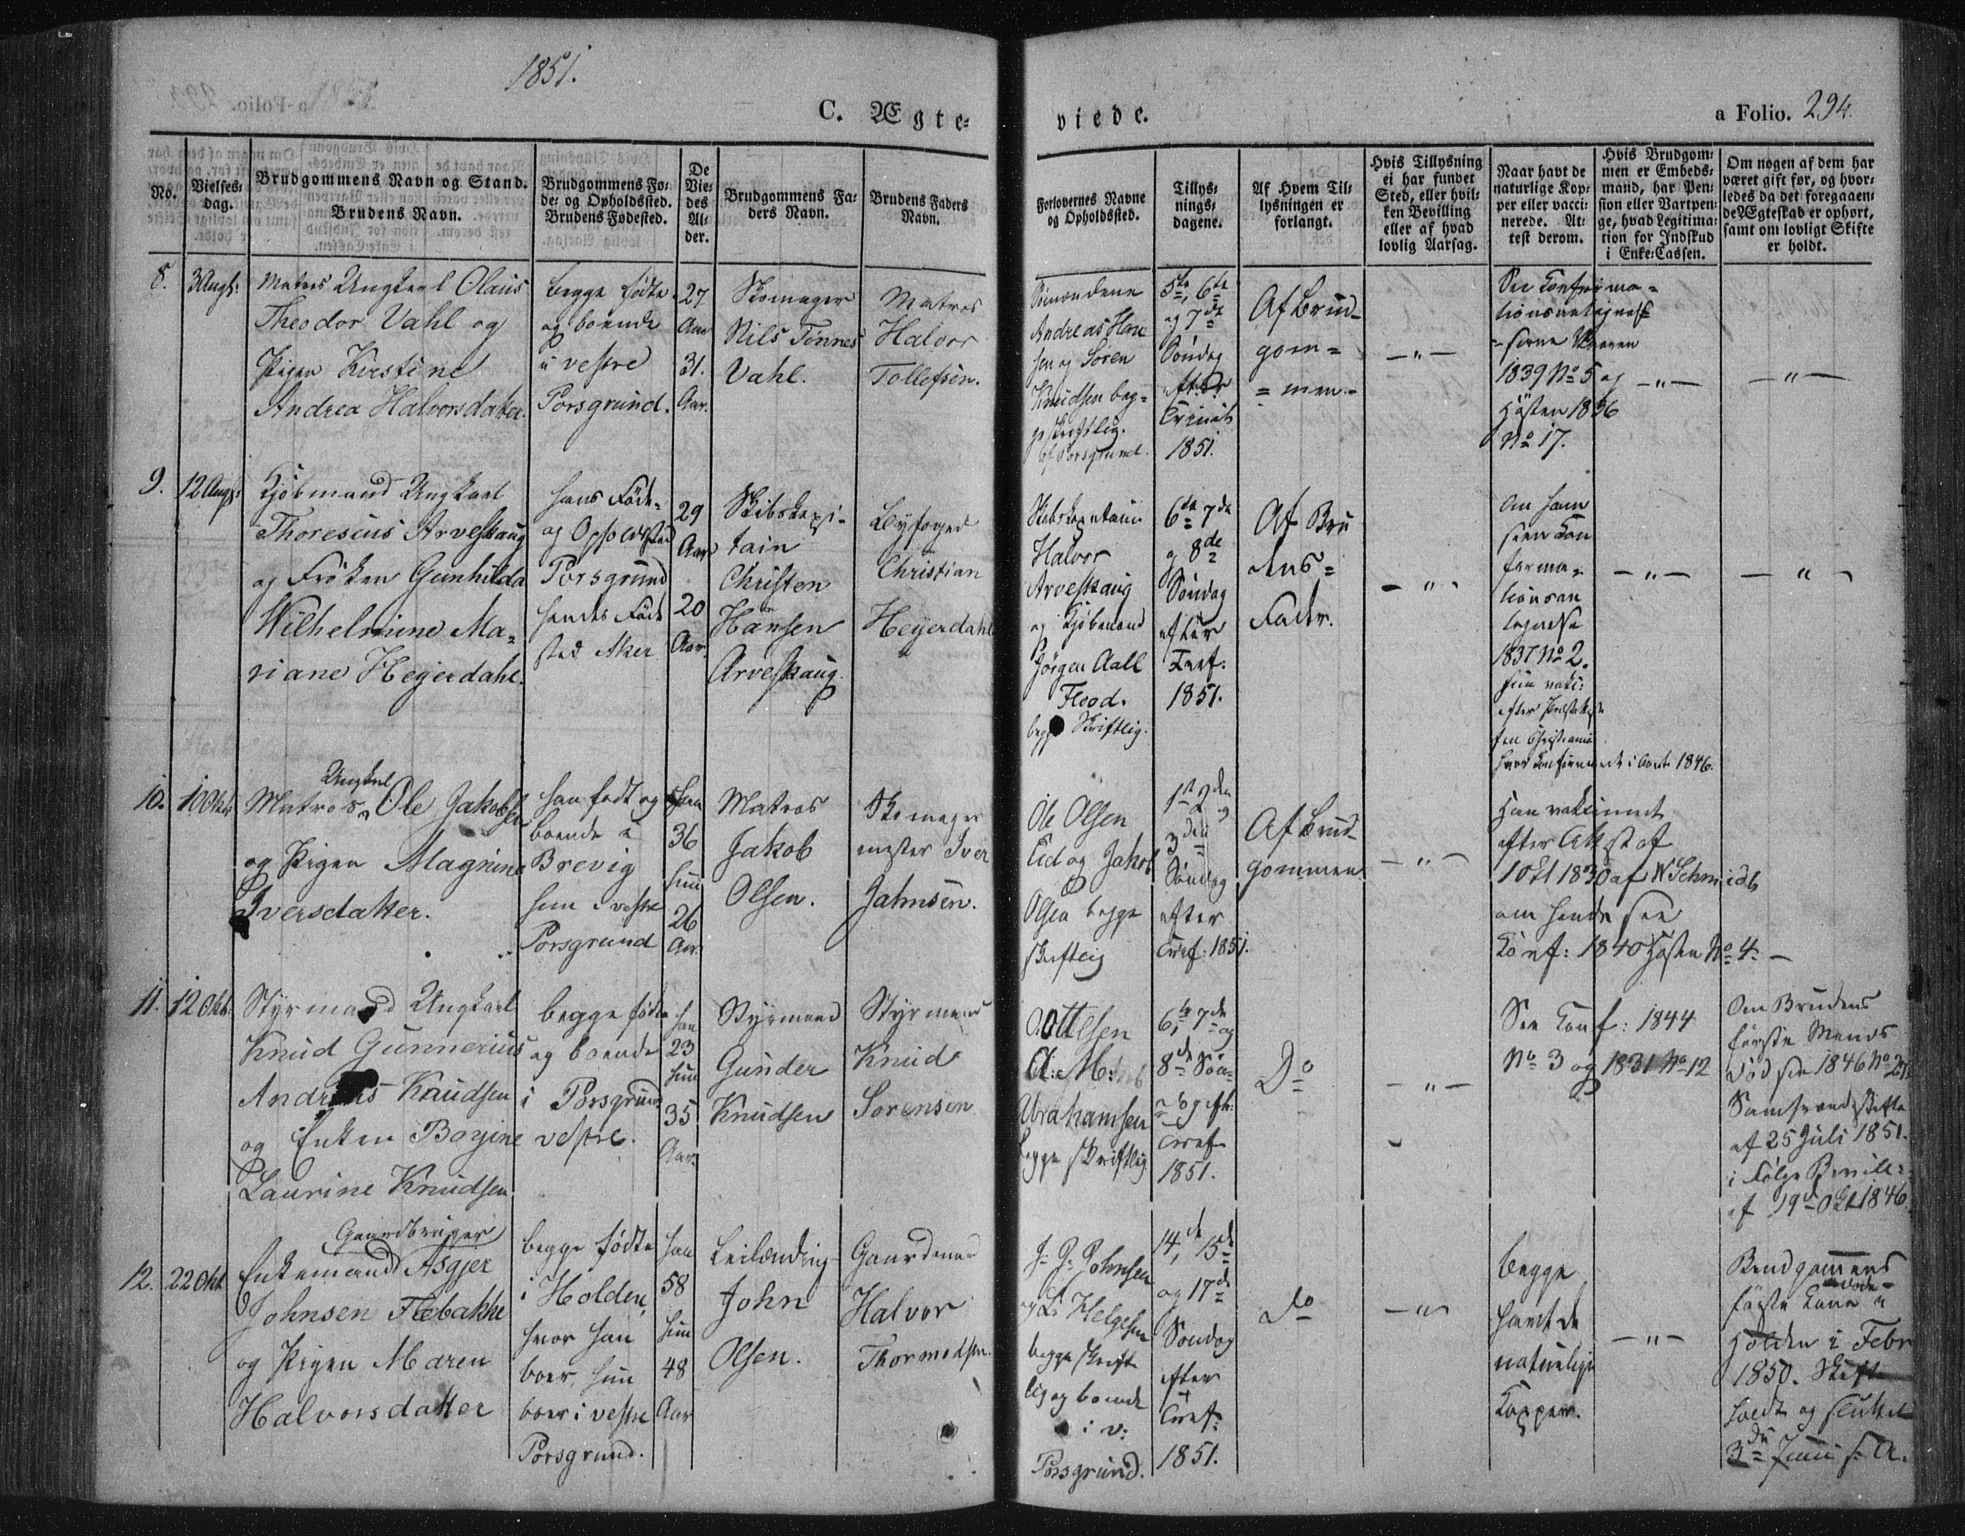 1851.
C. Ægte-
viede.
a Folio. 294.
No.
Vielses-
dag.
Brudgommens Navn og Stand.
Brudens Navn.
Brudgommens Fø-
de- og Opholdsted.
Brudens Fødested.
De
Vie-
des
Al-
der.
Brudgommens Fa-
ders Navn.
Brudens Faders
Navn.
Forlovernes Navne
og Opholdssted.
Tillys-
nings-
dagene.
Af Hvem Til-
lysningen er
forlangt.
Hvis Tillysning
ei har fundet
Sted, eller hvil-
ken Bevilling
eller af hvad
lovlig Aarsag.
Naar havt de
naturlige Kop-
per eller vacci-
nerede. At-
test derom.
Hvis Brudgom-
men er Embeds-
mand, har Pen-
sion eller Vartpen-
ge, hvad Legitima-
tion for Indskud
i Enke-Cassen.
Om nogen af dem har
været gift før, og hvor-
ledes da det foregaaen-
de Ægteskab er ophørt,
samt om lovligt Skifte
er holdt.
8.
3 Augs:
Matros Ungkarl Olaus
Theodor Vahl og
Pigen Kirstine
Andrea Halvorsdatter.
begge fødte
og boende
i vestre
Porsgrund.
27
Aar
31.
Aar.
Skomager
Nils Tønnes
Vahl.
Matros
Halvor
Tollefsen.
Sømændene
Andreas Han
sen og Sören
Knudsen beg-
ge skriftlig.
af Porsgrund.
5te, 6te
og 7de
Söndag
efter
Trinit
1851.
Af Brud-
gom=
=men.-
- " -
See Confirma=
tionsantegnels
=serne Vaaren
1839 No 5 og
Høsten 1836
No 17.
- " -
- " -
9.
12 Augs:
Kjöbmand Ungkarl
Thoresius Arveskaug
og Frøken Gunhilda
Wilhelmine Ma=
riane Heyerdahl.
hans Föde-
og Opholdsted
Porsgrund
hendes Föde
sted Aker
29
Aar
20
Aar.
Skibskapi-
tain
Christen
Hansen
Arveskaug.
Byfoged
Christian
Heyerdahl
Skibskaptain
Halvor
Arveskaug
og Kjöbmand
Jörgen Aall
Flood.
begge Skriftlig.
6te 7de
og 8de
Söndag
efter
Tref:
1851.
Af Bru
dens=
Fader.
- " -
Om ham
seen Con
firma=
tionsan
tegnelse
1837 No 2.
hun vaki:
efter
fen Christiania
hvor Confirmeret i Aaret 1846.
- " -
- " -
10.
10 Okt.
Ungkarl
Matros Ole Jakobsen
og Pigen Magnine
Iversdatter.
han født og
boende i
Brevig
hun i vestre
Porsgrund
Han
36
hun
26
Aar.
Matros
Jakob
Olsen.
Skomager
mester Iver
Jahnsen.
Ole Olsen
Eid og Jakob
Olsen begge
skriftlig
1ste 2den
og
3die
Söndag
efter
Tref: 1851.
Af Brud
gommen
- " -
Han vakcineret
efter Attst af
10 Okt 1830 af W Schmidt
om hende see
Conf: 1840 Høsten No 4. -
11.
12 Okt.
Styrmand Ungkarl
Knud Gunnerius
Andreas Knudsen
og Enken Borgine
Laurine Knudsen
begge fødte
og boende
i Porsgrund
vestre.
han
23
hun
35
Aar.
Styrmand
Gunder
Knudsen
Styrmand
Knud
Sørensen
O. Ottesen
Abrahamsen
begge skriftlig
6te, 7de
og
8de Søn=
dag efter:
Tref
1851.
Do
- " -
See Conf: 1844
No 3 og 1831 No 12
Om Brudens
første Mands
Död see 1846 No 21
Samfrændeskifte
af 25 Juli 1851.
i Følge Bevill=
af 19 Okt 1846.
12.
22 Okt
Gaardbruger
Enkemand Asgjer
Johnsen Flebakke
og Pigen Maren
Halvorsdatter
begge fødte
i Holden,
hvor han
boer, hun
boer i vestre
Porsgrund.
han
58
hun
48
Aar
Leilænding
John
Olsen.
Gaardmand
Halvor
Thormodsen.
J. P. Johnsen
og L. Helgesen
begge skrift
lig og boende
i v:
Porsgrund.
14de, 15de
og 17de
Søndag
efter
Tref:
1851.
Do
- " -
begge
havt de
naturlige
Kopper.
- " -
Brudgommens
første Kone døde i
Holden i Febr
1850. Skifte
holdt og sluttet
3die Juni s: A.